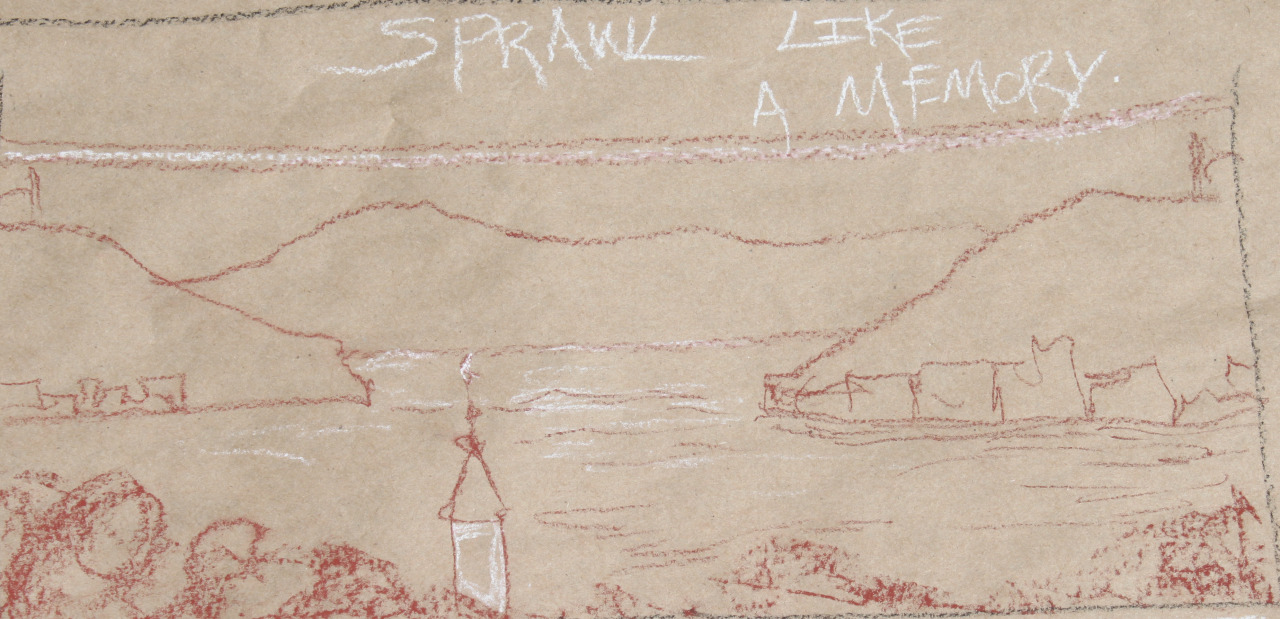 SPRAWL LIKE
A MEMORY.